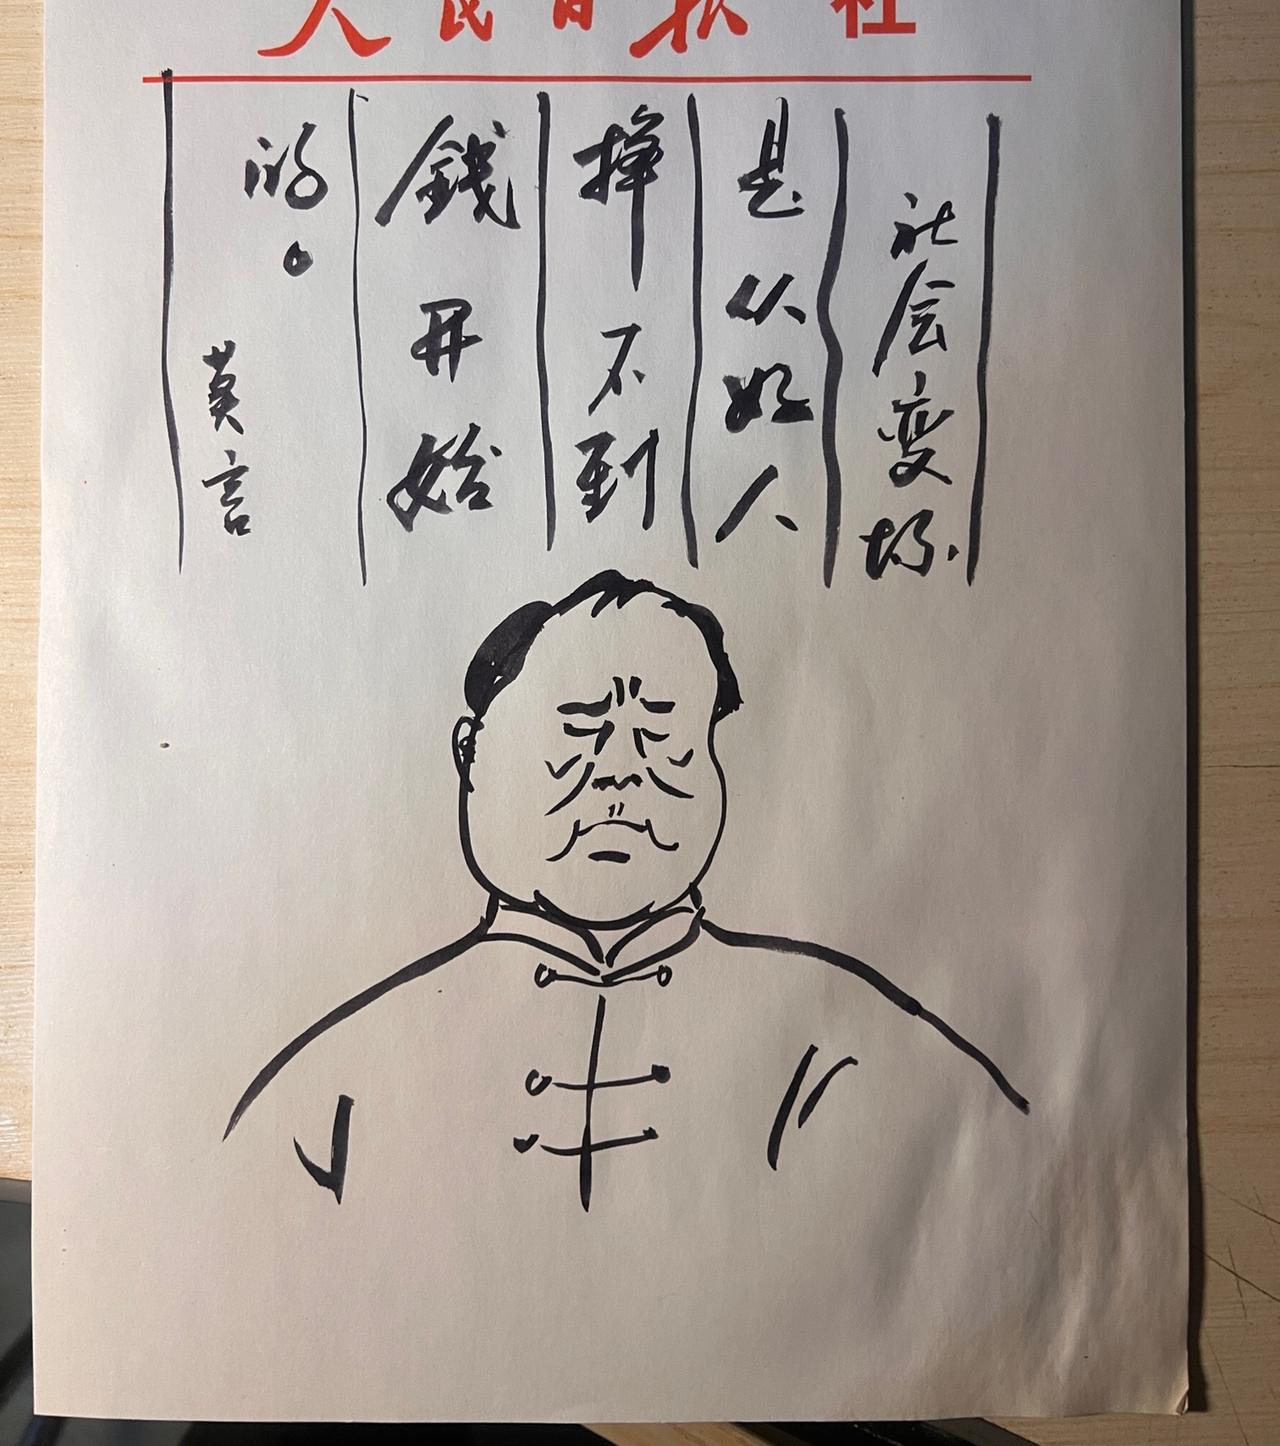 人民日报社
社会变坏
是从好人
挣不到
錢开始
的。
莫言